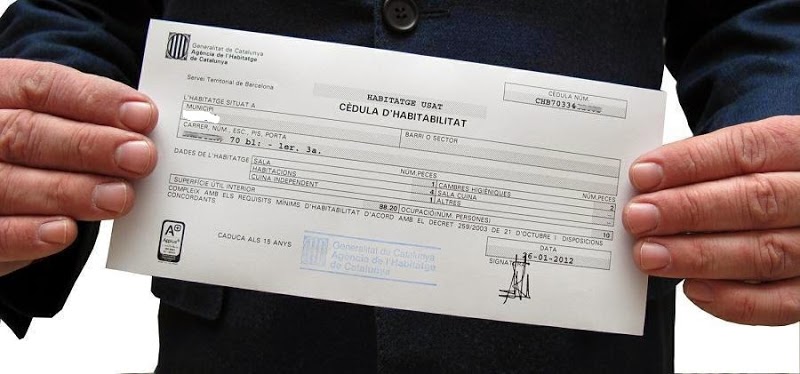 Generalitat de Catalunya
Agència de l'Habitatge
de Catalunya
Servei Territorial de Barcelona
HABITATGE USAT
CÈDULA D'HABITABILITAT
CÈDULA NÚM.
CHB70336
L'HABITATGE SITUAT A
MUNICIPI
BARRI O SECTOR
CARRER, NÚM., ESC., PIS, PORTA
70 bl: - 1er. 3a.
DADES DE L'HABITATGE
NÚM.PECES
NÚM.PECES
SALA 1 CAMBRES HIGIÈNIQUES 2
HABITACIONS 4 SALA CUINA
CUINA INDEPENDENT 1 ALTRES
SUPERFÍCIE ÚTIL INTERIOR 88.20 OCUPACIÓ(NÚM. PERSONES) 10
COMPLEIX AMB ELS REQUISITS MÍNIMS D'HABITABILITAT D'ACORD AMB EL DECRET 259/2003 DE 21 D'OCTUBRE I DISPOSICIONS
CONCORDANTS
DATA
26-01-2012
A+
Applus
CADUCA ALS 15 ANYS
Generalitat de Catalunya
Agència de l'Habitatge
de Catalunya